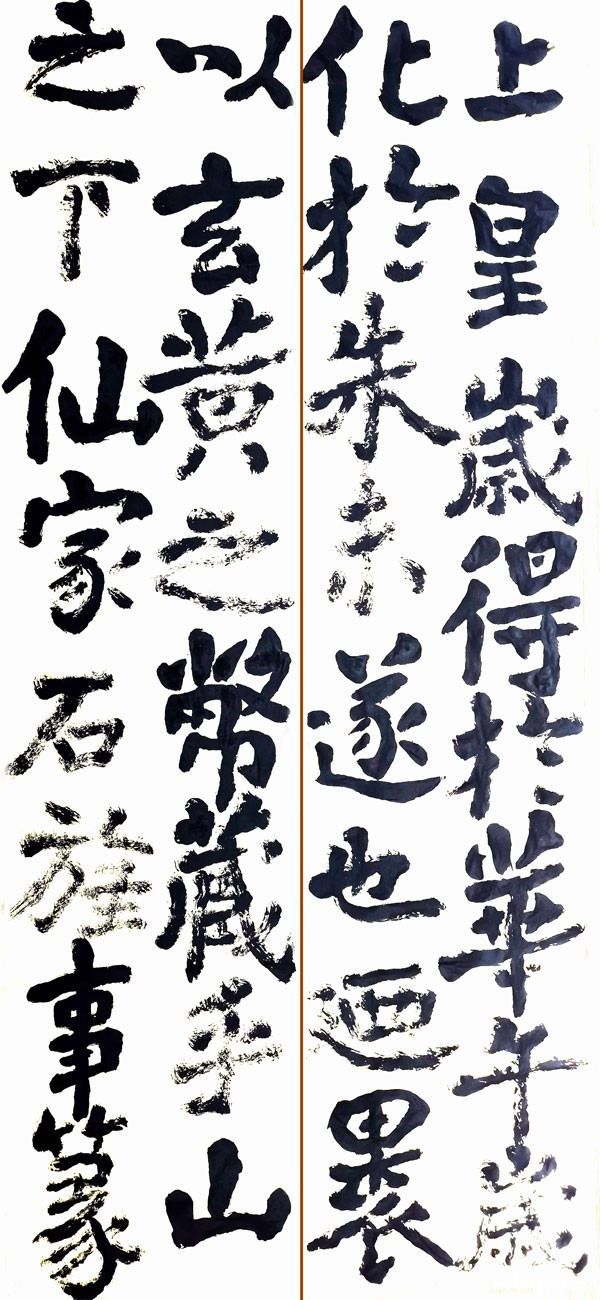 上皇歲得於華午歲
化於朱未遂也迺裹
以玄黃之幣藏乎山
之下仙家石旌事篆